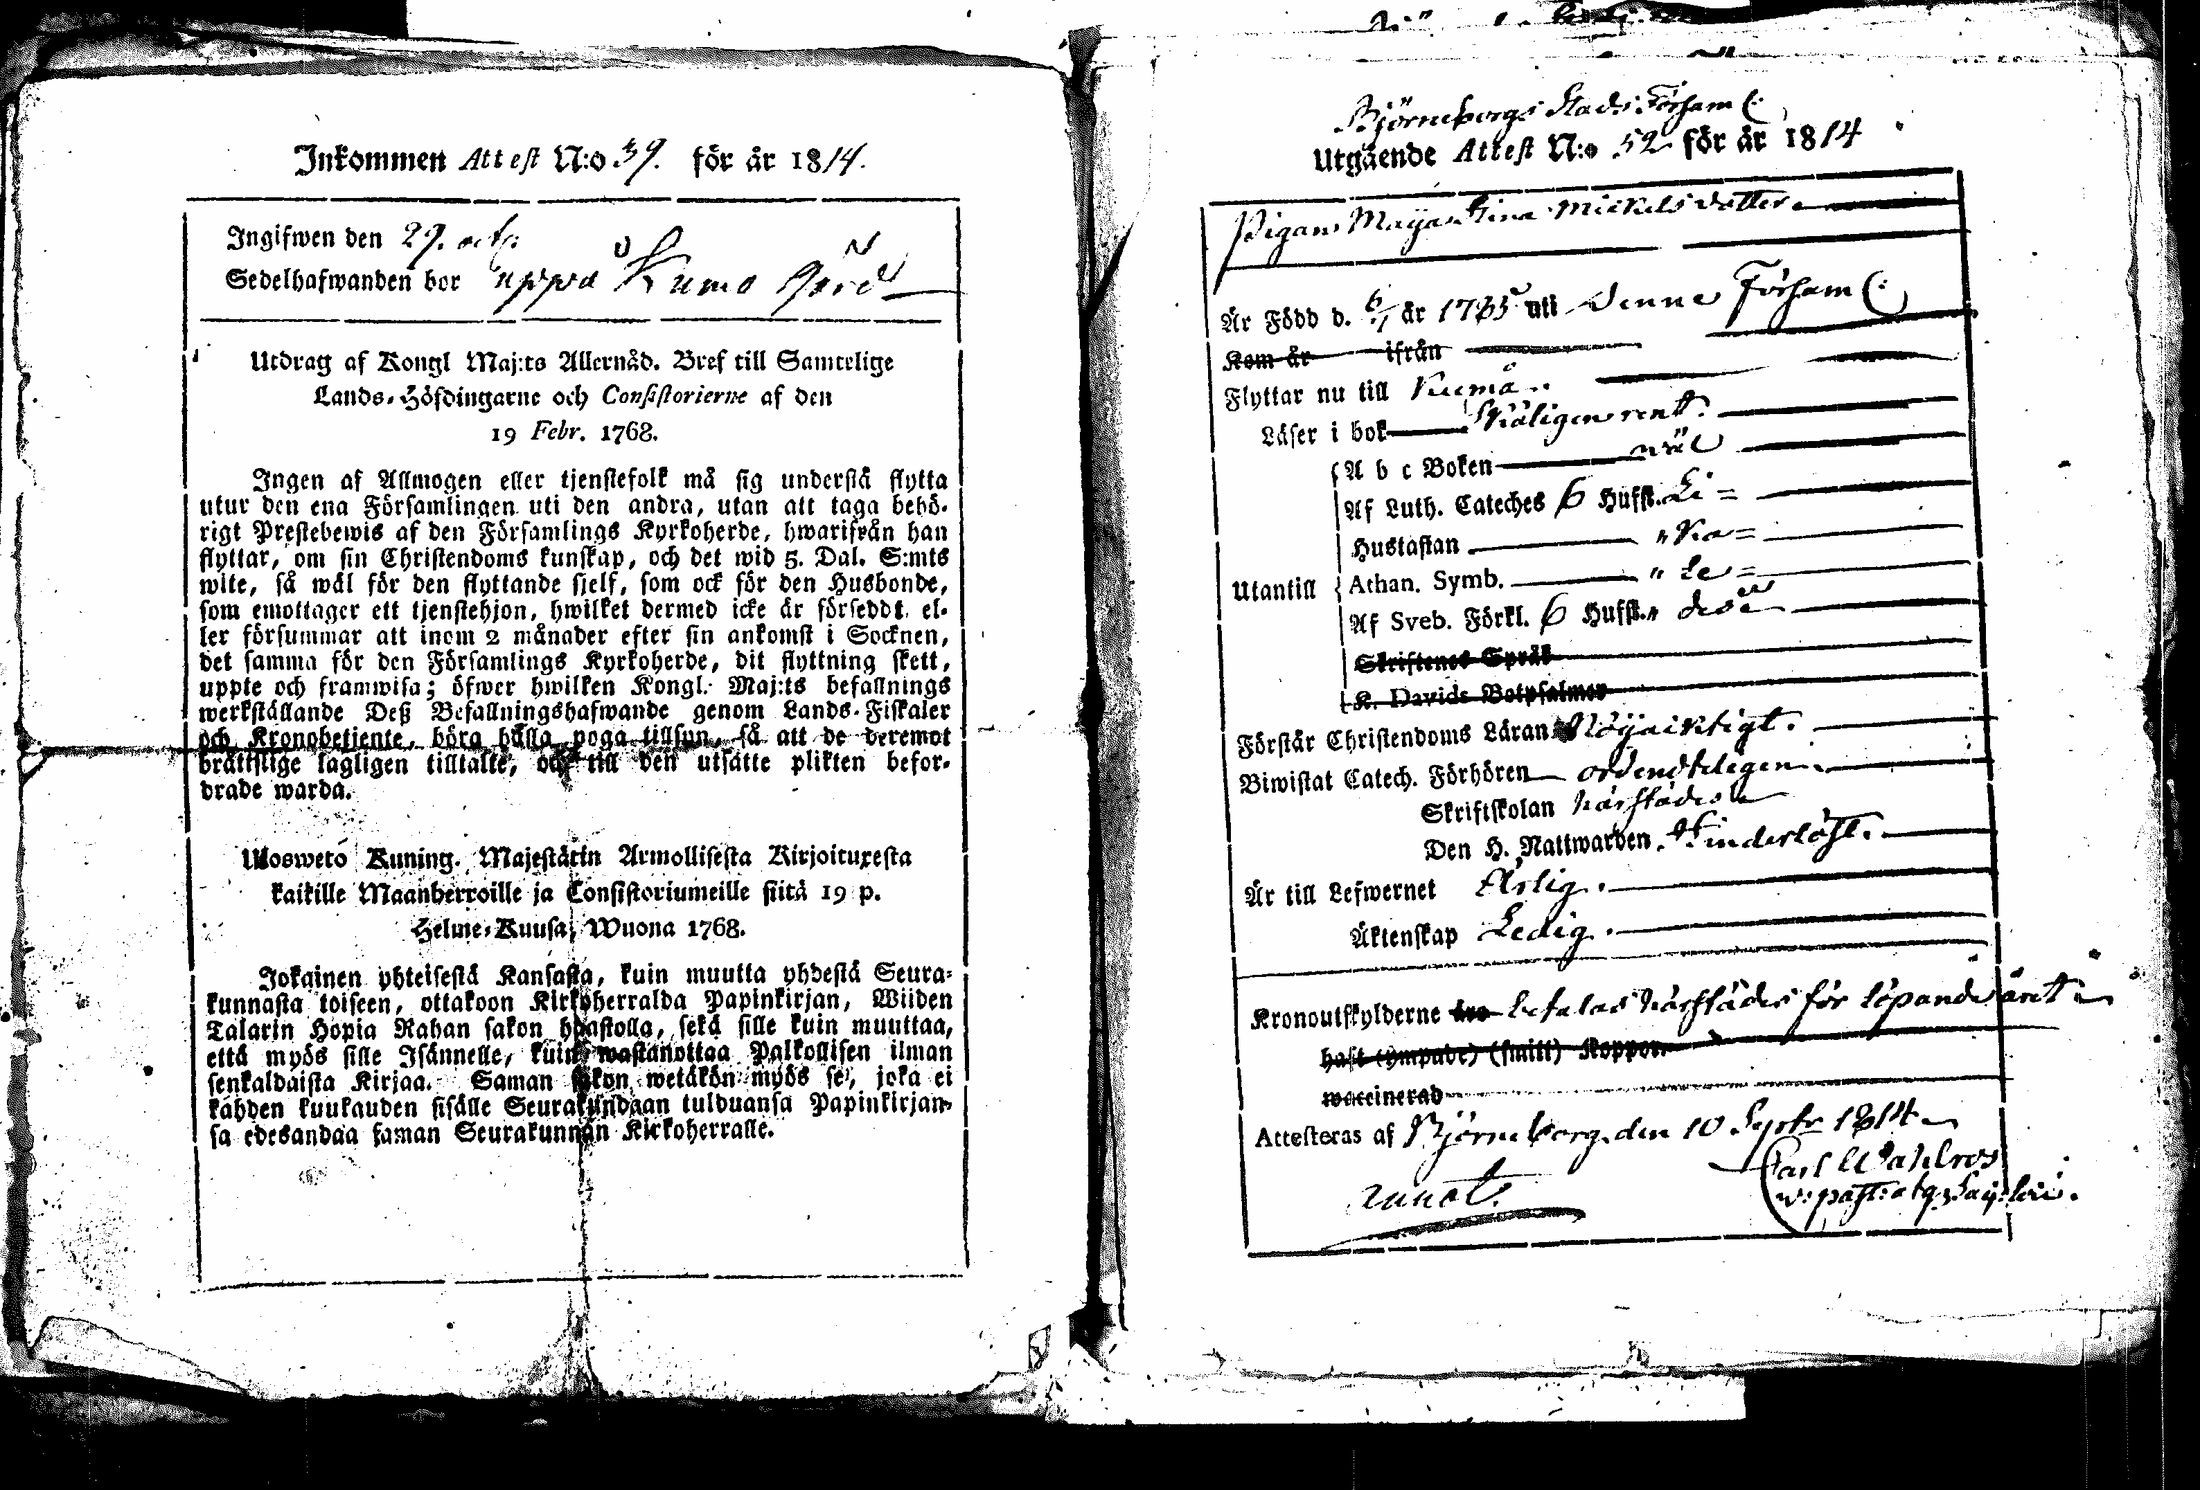 Inkommen Attest N:o 39. för år 1814.
Ingifwen den 29. octb:
Sedelhafwanden bor uppå Kumo Gård
Utdrag af Kongl Maj:ts Allernåd. Bref till Samtelige
Lands-Höfdingarne och Consistorierne af den
19 Febr. 1768.
Ingen af Allmogen eller tjenstefolk må sig understå flytta
utur den ena Församlingen uti den andra, utan att taga behö-
rigt Prestebewis af den Församlings Kyrkoherde, hwarifrån han
flyttar, om sin Christendoms kunskap, och det wid 5. Dal. S:mts
wite, så wäl för den flyttande sjelf, som ock för den Husbonde,
som emottager ett tjenstehjon, hwilket dermed icke är förseddt, el-
ler försummar att inom 2 månader efter sin ankomst i Socknen,
det samma för den Församlings Kyrkoherde, dit flyttning skett,
uppte och framwisa; öfwer hwilken Kongl. Maj:ts befallnings
werkställande Deß Befallningshafwande genom Lands-Fiskaler
och Kronobetjente, böra hålla noga tillsyn, så att de deremot
brättslige lagligen tilltalte, och till den utsatte plikten befor-
drade warda.
Ulosweto Kuning. Majestätin Armollisesta Kirjoituxesta
kaikille Maanherroille ja Consistoriumeille siitä 19 p.
Helme-Kuusa, Wuona 1768.
Jokainen yhteisestä Kansasta, kuin muutta yhdestä Seura-
kunnasta toiseen, ottakoon Kirkoherralda Papinkirjan, Wiiden
Talarin Hopia Rahan sakon haastolla, sekä sille kuin muuttaa,
että myös sille Isännelle, kuin wastanottaa Palkollisen ilman
senkaldaista Kirjaa. Saman sakon wetäkön myös se, joka ei
kahden kuukauden sisälle Seurakundaan tulduansa Papinkirjan-
sa edesandaa saman Seurakunnan Kirkoherralle.
Björneborgs Stads Försam(:
Utgående Attest N:o 52 för år 1814
Pigan Maja Stina Mickelsdotter
Är Född d. 6/1 år 1785 uti denne Försam(:
Kom år ifrån
Flyttar nu till Kumå
Läser i bok Skäligen rent.
A b c Boken wäl
Af Luth. Cateches 6 Hufst. Li =
Hustaflan " Ka =
Athan. Symb. " Le =
Utantill
Af Sveb. Förkl. 6 Hufst. "
Skriftenes Språk
K. Davids Botpsalmer
Förstår Christendoms Läran Nöjaktigt.
Biwistat Catech. Förhören ordendteligen.
Skriftskolan härstädes
Den H. Nattwarden Hinderlöst.
Är till Lefwernet Ärlig.
Äktenskap Ledig.
Kronoutskylderne äro betalas härstädes för löpande året
haft (ympade) (smitt) Koppor
waccinerad
Attesteras af Björneborg den 10 Septr 1814
Carl Wahlroos